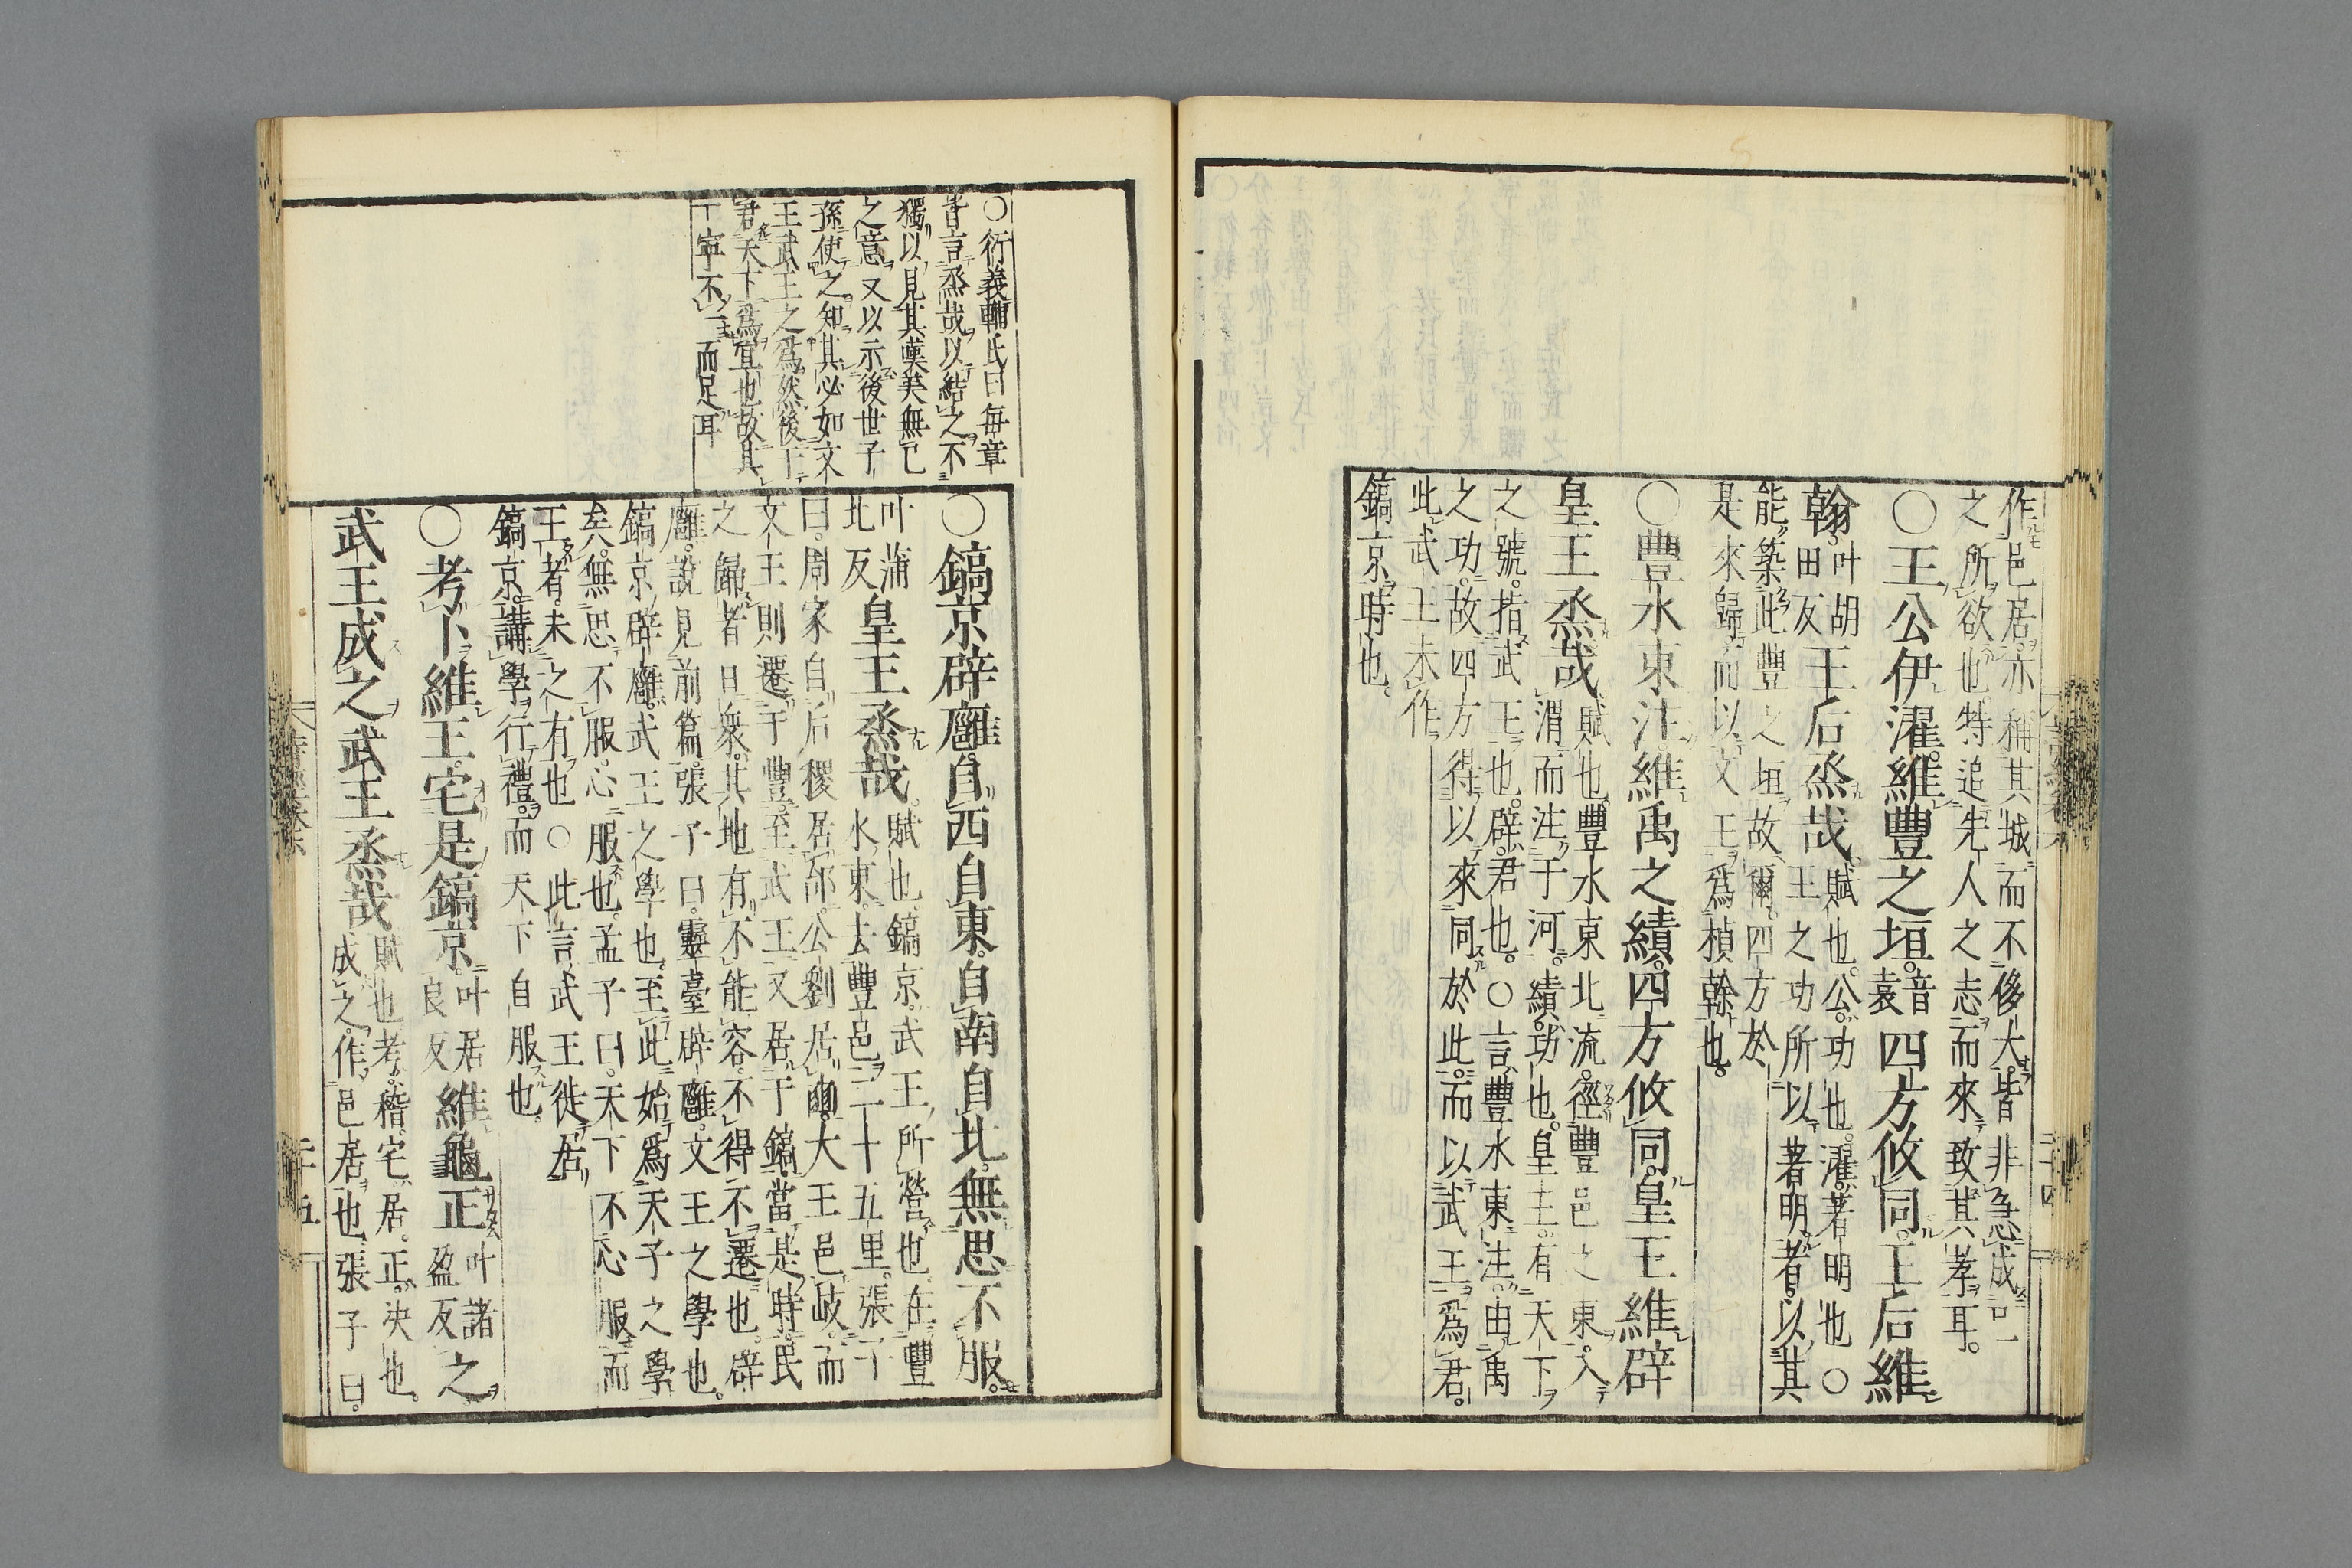 作邑居亦稱其城而不侈大皆非急成己
之所欲也特追先人之志而來致其孝耳。
○王公伊濯維豐之垣音袁四方攸同王后維
翰叶胡田反王后烝哉賦也公功也濯著明也○
王之功所以著明者以其
能築此豐之垣故爾四方於
是來歸而以文王爲楨幹也。
○豐水東注維禹之績四方攸同皇王維辟
皇王烝哉賦也豐水東北流徑豐邑之東入
渭而注于河績功也皇王有天下
之號指武王也辟君也○言豐水東注由禹
之功故四方得以來同於此而以武王爲君
此武王未作
鎬京時也。
○衍義輔氏曰每章
皆言烝哉以結之不
獨以見其嘆美無已
之意又以示後世子
孫使之知其必如文
王武王之爲然後于
君天下爲宜也故其
丁寧不一而足耳
○鎬京辟廱自西自東自南自北無思不服
叶蒲北反皇王烝哉賦也鎬京武王所營也在豐
水東去豐邑二十五里張子
曰周家自后稷居邰公劉居豳大王邑岐而
文王則遷于豐至武王又居于鎬當是時民
之歸者日衆其地有不能容不得不遷也辟
廱說見前篇張子曰靈臺辟廱文王之學也
鎬京辟廱武王之學也至此始爲天子之學
矣無思不服心服也孟子曰天下不心服而
王者未之有也○此言武王徙居
鎬京講學行禮而天下自服也。
○考卜維王宅是鎬京叶居良反維龜正叶諸盈反之
武王成之武王烝哉賦也考稽宅居正決也
成之作邑居也張子曰